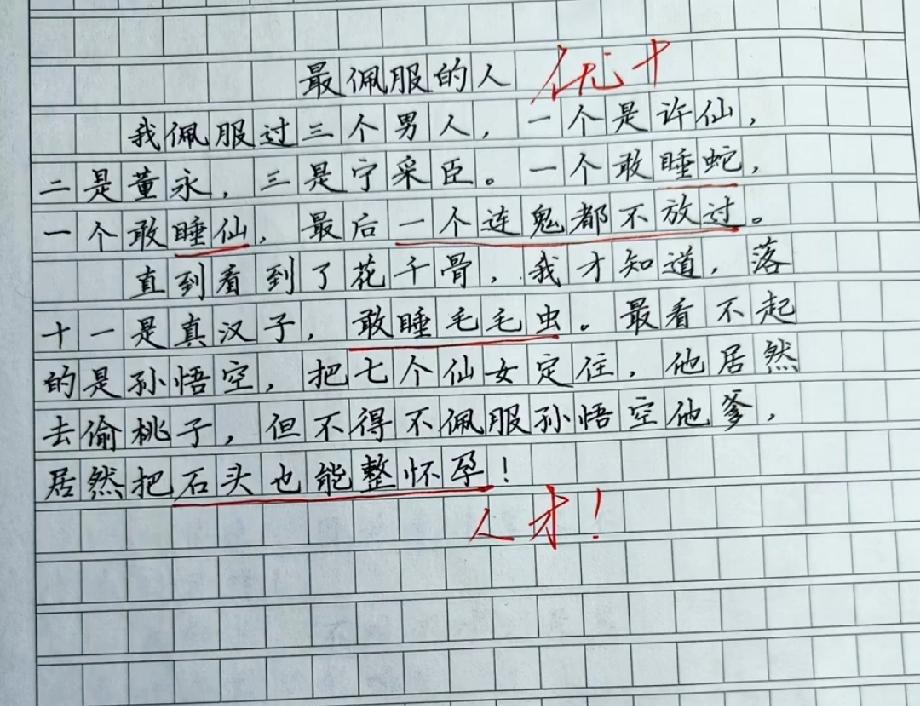 最佩服的人 优+
我佩服过三个男人，一个是许仙，
二是董永，三是宁采臣。一个敢睡蛇，
一个敢睡仙，最后一个连鬼都不放过。
直到看到了花千骨，我才知道，落
十一是真汉子，敢睡毛毛虫。最看不起
的是孙悟空，把七个仙女定住，他居然
去偷桃子，但不得不佩服孙悟空他爹，
居然把石头也能整怀孕！
人才！